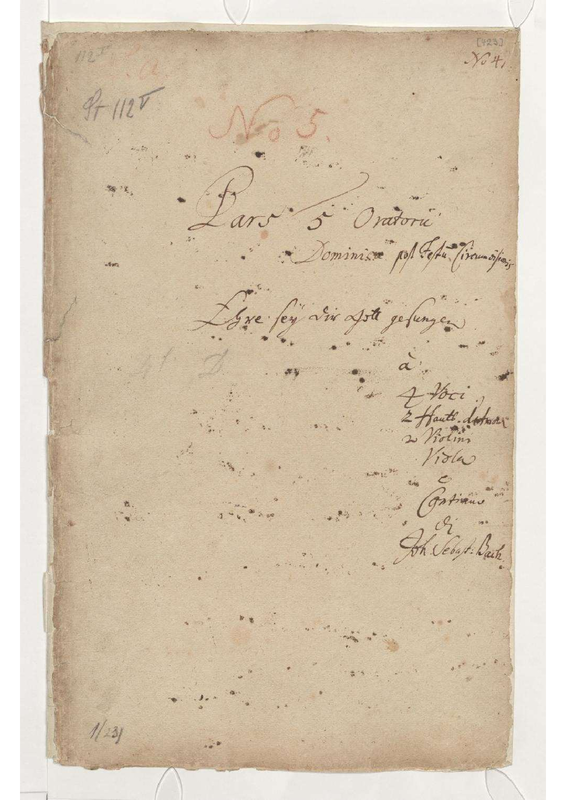 112 V
[423]
No 4.
a
St 112 V
No 5.
Pars 5 Oratorii
Dominica post Festu. Circumcisionis
Ehre sey dir Gott gesungen
à
4 Voci
2 Hautb. d'Amour
2 Violini
Viola
e
Continuo
di
Joh. Sebast: Bach